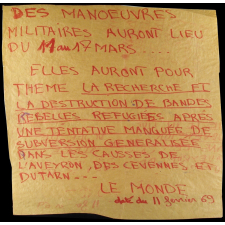 DES MANOEUVRES
MILITAIRES AURONT LIEU
DU 11 au 17 MARS .....
ELLES AURONT POUR
THEME LA RECHERCHE ET
LA DESTRUCTION DE BANDES
REBELLES REFUGIEES APRES
UNE TENTATIVE MANQUEE DE
SUBVERSION GENERALISEE
DANS LES CAUSSES DE
L'AVEYRON, DES CEVENNES ET
DU TARN ...
LE MONDE
daté du 11 février 69